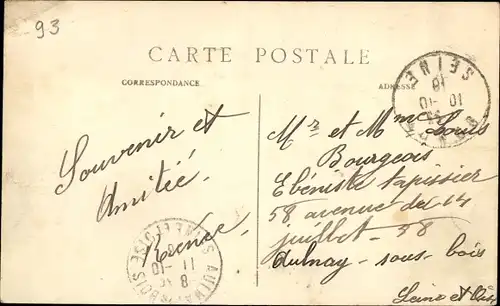 93
CARTE POSTALE
CORRESPONDANCE
ADRESSE
SEINE
18
10 - 10
Souvenir et
Amitié.
Renée.
Mr et Mme Louis
Bourgeois
Ebéniste tapissier
58 avenue du 14
juillet - 58
Aulnay - sous - bois
Seine et Oise
AULNAY BOIS
11 - 10
8